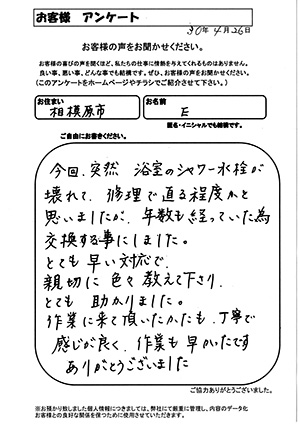 お客様　アンケート
30年4月26日
お客様の声をお聞かせください。
お客様の喜びの声を聞くほど、私たちの仕事に情熱を与えてくれるものはありません。
良い事、悪い事、どんな事でも結構です。ぜひ、お客様の声をお聞かせください。
(このアンケートをホームページやチラシでご紹介させて下さい。)
お住まい
相模原市
お名前
E
匿名・イニシャルでも結構です。
ご自由にお書きください。
今回、突然　浴室のシャワー水栓が
壊れて、修理で直る程度かと
思いましたが、年数も経っていた為
交換する事にしました。
とても早い対応で、
親切に色々教えて下さり、
とても助かりました。
作業に来て頂いたかたも、丁寧で
感じが良く、作業も早かったです
ありがとうございました
ご協力ありがとうございました。
※お預かり致しました個人情報につきましては、弊社にて厳重に管理し、内容のデータ化
お客様との良好な関係を保つために使用させていただきます。